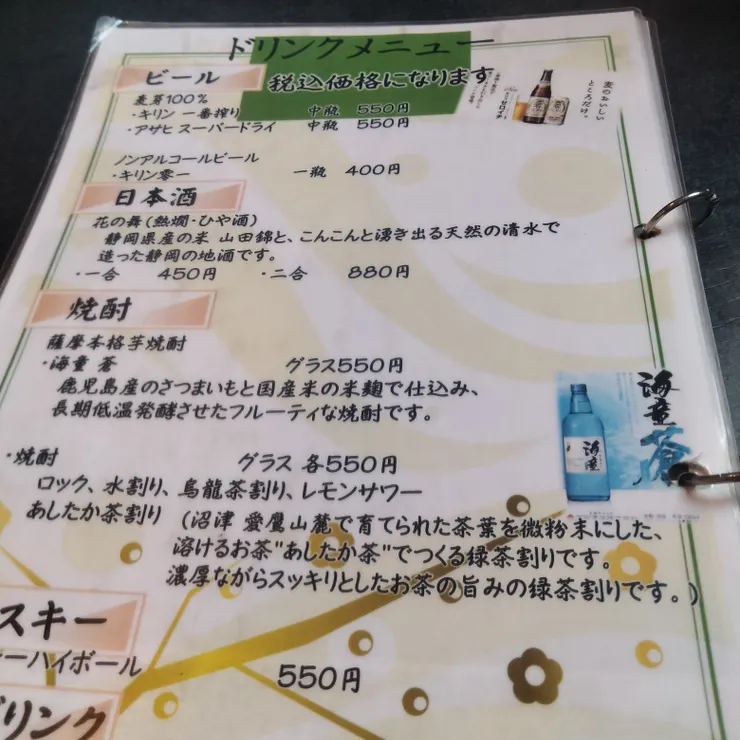 ドリンクメニュー
ビール
税込価格になります
麦芽100%
・キリン 一番搾り 中瓶 550円
・アサヒ スーパードライ 中瓶 550円
麦のおいしい
ところだけ。
ノンアルコールビール
・キリン零一 一瓶 400円
日本酒
花の舞(熱燗・ひや酒)
静岡県産の米 山田錦と、こんこんと湧き出る天然の清水で
造った静岡の地酒です。
・一合 450円 ・二合 880円
焼酎
薩摩本格芋焼酎
・海童 蒼 グラス550円
鹿児島産のさつまいもと国産米の米麹で仕込み、
長期低温発酵させたフルーティな焼酎です。
海童
蒼
海童
・焼酎 グラス 各550円
ロック、水割り、烏龍茶割り、レモンサワー
あしたか茶割り (沼津 愛鷹山麓で育てられた茶葉を微粉末にした、
溶けるお茶"あしたか茶"でつくる緑茶割りです。
濃厚ながらスッキリとしたお茶の旨みの緑茶割りです。)
スキー
ーハイボール
550円
リンク